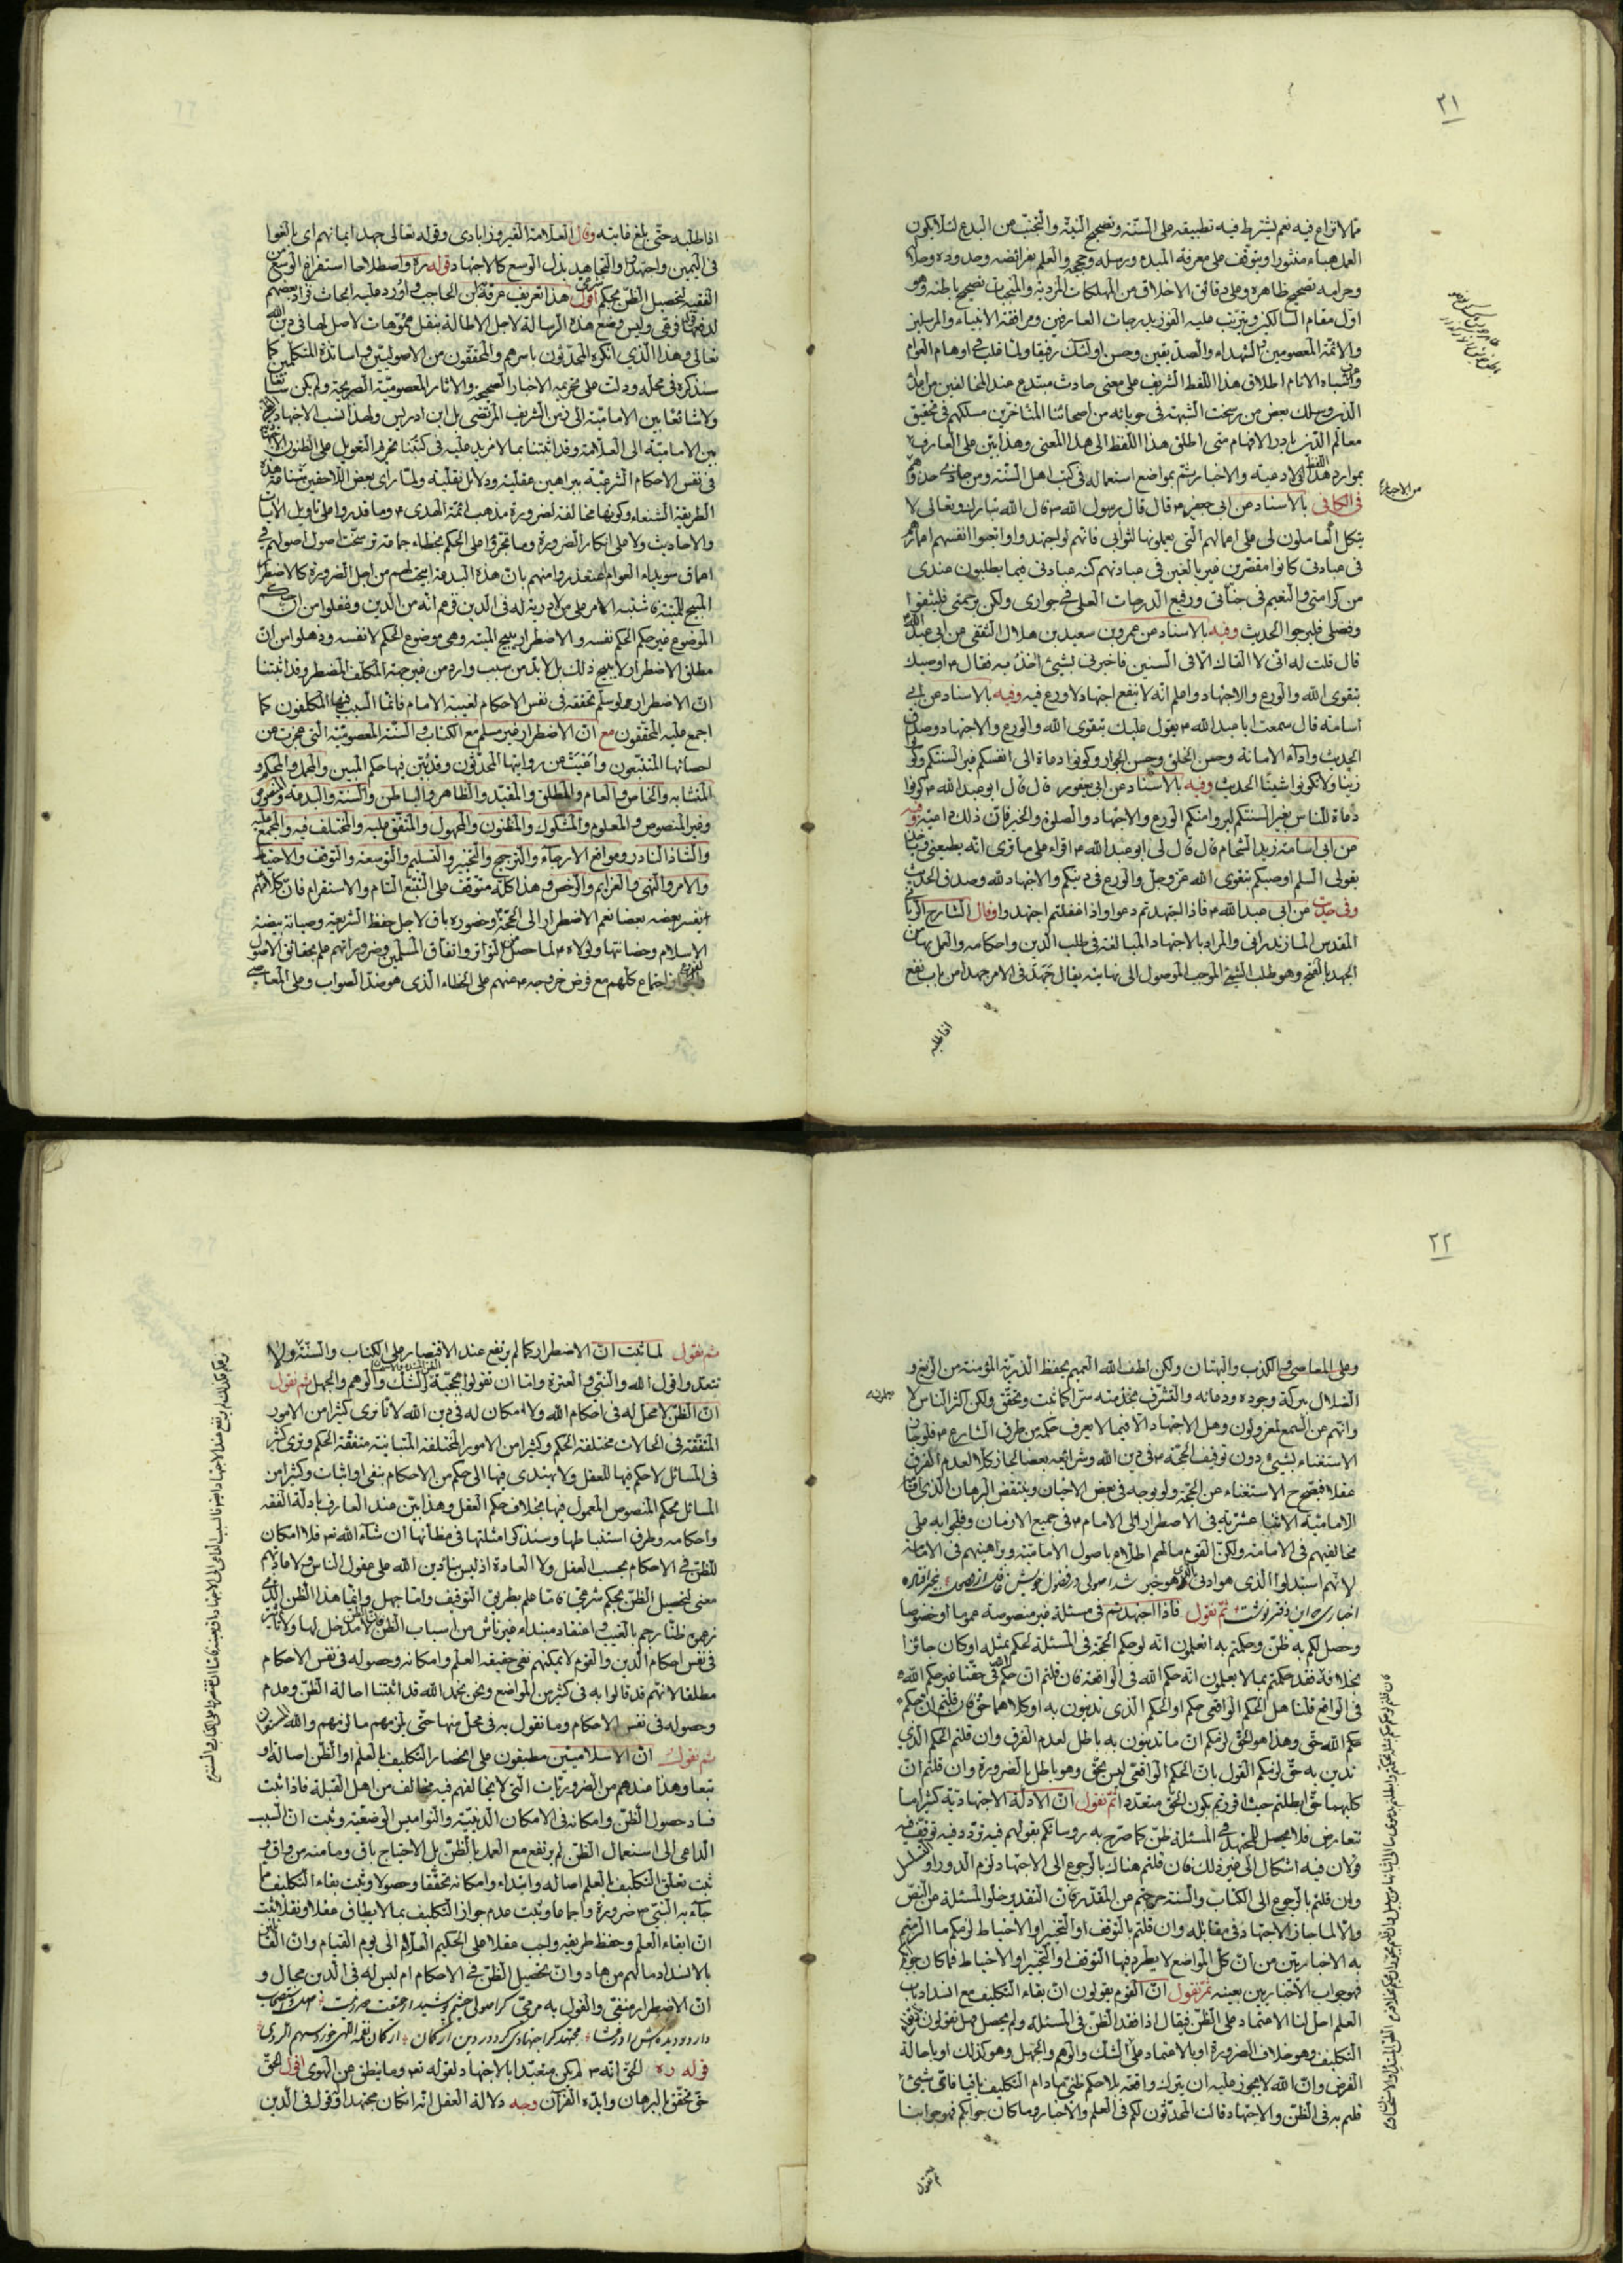 ٢١
مما لا نزاع فيه نعم يشترط فيه تطبيقه على السنة وتصحيح النية والتجنب من البدع لئلا يكون
العمل هباء منثورا ويتوقف على معرفة المبدء ورسله وحججه والعلم بفرائضه وحدوده وحلاله
وحرامه تصحيح ظاهره وعلى دقائق الاخلاق من المهلكات المردية والمنجيات تصحيح باطنه وهو
اول مقام السالكين ويترتب عليه الفوز بدرجات العارفين ومرافقة الانبياء والمرسلين
والائمة المعصومين والشهداء والصديقين وحسن اولئك رفيقا ولما غلب في اوهام العوام
واشباه الانام اطلاق هذا اللفظ الشريف على معنى حادث مبتدع عند المخالفين من اهل
وسلك بعض من رسخت الشبهة في جوبائه من اصحابنا المتاخرين مسلكهم في تحقيق
معالم الدين بادر الافهام متى اطلق هذا اللفظ الى هذا المعنى وهذا بين على العارف
بموارد هذا اللفظ في الادعية والاخبار ثم بمواضع استعماله في كتب اهل السنة ومن حاذى حذوهم
من الاخبار
في الكافي بالاسناد عن ابي جعفر ع قال قال رسول الله ص قال الله تبارك وتعالى لا
يتكل العاملون لي على اعمالهم التي يعملونها لثوابي فانهم لو اجتهدوا واتعبوا انفسهم اعمارهم
في عبادتي كانوا مقصرين غير بالغين في عبادتهم كنه عبادتي فيما يطلبون عندي
من كرامتي والنعيم في جناتي ورفيع الدرجات العلى في جواري ولكن برحمتي فليثقوا
وفضلي فليرجوا الحديث وفيه بالاسناد عن عمرو بن سعيد بن هلال الثقفي عن ابي عبد الله
قال قلت له اني لا القاك الا في السنين فاخبرني بشيئ اخذ به فقال ع اوصيك
بتقوى الله والورع والاجتهاد واعلم انه لا ينفع اجتهاد لا ورع فيه وفيه بالاسناد عن ابي
اسامة قال سمعت ابا عبد الله ع يقول عليك بتقوى الله والورع والاجتهاد وصدق
الحديث واداء الامانة وحسن الخلق وحسن الجوار وكونوا دعاة الى انفسكم بغير السنتكم وكونوا
زينا ولا تكونوا شينا الحديث وفيه بالاسناد عن ابي يعفور قال قال ابو عبد الله ع كونوا
دعاة للناس بغير السنتكم ليروا منكم الورع والاجتهاد والصلوة والخير فان ذلك داعية وفيه
عن ابي اسامة زيد الشحام قال قال لي ابو عبد الله ع اقراء على من ترى انه يطيعني وياخذ
بقولي السلم اوصيكم بتقوى الله عز وجل والورع في دينكم والاجتهاد لله وصدق الحديث
وفي حديث عن ابي عبد الله ع فاذا اجتهدتم دعوا واذا غفلتم اجتهدوا وقال الشارح
المقدس المازندراني والمراد بالاجتهاد المبالغة في طلب الدين واحكامه والعمل بها من
الجهد بالفتح وهو طلب الشيئ الموجب الموصول الى نهايته يقال جهد في الامر جهدا من باب نفع
اذا طلبه
اذا طلبه حتى بلغ غايته وقال العلامة الفيروزابادي وقوله تعالى جهد ايمانهم اي بالغوا
في اليمين واجتهدوا والتجاهد بذل الوسع كالاجتهاد قوله ره واصطلاحا استفراغ الوسع من
الفقيه لتحصيل الظن بحكم شرعي اقول هذا تعريف عرفه ابن الحاجب واورد عليه ابحاث
وليس وضع هذه الرسالة لاجل الاطالة بنقل مموهات لا اصل لها في دين الله
تعالى وهذا الذي انكره المحدثون باسرهم والمحققون من الاصوليين واساتذة المتكلمين كما
سنذكره في محله ودلت على تحريمه الاخبار الصحيحة والاثار المعصومية الصريحة ولم يكن
ولا شائعا بين الامامية الى زمن الشريف المرتضى بل ابن ادريس ولهذا نسب الاجتهاد
بين الامامية الى العلامة وقد اثبتنا بما لا مزيد عليه في كتبنا تحريم التعويل على الظنون
في نفس الاحكام الشرعية ببراهين عقلية ودلائل نقلية ولما راى بعض اللاحقين شناعة هذه
الطريقة الشنعاء وكونها مخالفة لضرورة مذهب ائمة الهدى ع وما قدروا على تاويل الايات
والاحاديث ولا على انكار الضرورة وما تجرؤا على الحكم بخطاء جماعة ترسخت اصول اصولهم في
اعماق سويداء العوام اعتذروا منهم بان هذه البدعة ابيحت لهم من اجل الضرورة كالاضطرار
المبيح للميتة فاشتبه الامر على من لا دربة له في الدين فزعم انه من الدين وغفلوا من ان
الموضوع غير حكم الحكم نفسه والاضطرار يبيح الميتة وهي موضوع الحكم لا نفسه وذهلوا من ان
مطلق الاضطرار لا يبيح ذلك بل لا بد من سبب وارد من غير جهة المكلف المضطر وقد اثبتنا
ان الاضطرار لو سلم تحققه في نفس الاحكام لغيبة الامام فانما السبب فيها المكلفون كما
اجمع عليه المحققون مع ان الاضطرار غير مسلم مع الكتاب والسنة المعصومية التي عجزت عن
احصائها المتتبعون واعيت عن روايتها المحدثون وقد بين فيها حكم المبين والمجمل والمحكم و
المتشابه والخاص والعام والمطلق والمقيد والظاهر والباطن والسنة والبدعة
وغير المنصوص والمعلوم والمشكوك والمظنون والمجهول والمتفق عليه والمختلف فيه والمجمع عليه
والشاذ النادر ومواضع الارجاء والترجيح والتخيير والتسليم والتوسعة والتوقف والاحتياط
والامر والنهي والعزايم والرخص وهذا كله متوقف على التتبع التام والاستقراء فان كلامهم
يفسر بعضه بعضا نعم الاضطرار الى الحجة وحضوره باق لاجل حفظ الشريعة وصيانة بيضة
الاسلام وحضانتها ولولاه ع لما حصل التواتر واتفاق المسلمين وضروراتهم علم بحقائق الاصول
اجتماع كلهم مع فرض خروجه ع عنهم على الخطاء الذي هو ضد الصواب وعلى المعاصي
٢٢
وعلى المعاصي والكذب والبهتان ولكن لطف الله العميم بحفظ الذرية المؤمنة من الزيغ و
الضلال ببركة وجوده ودعائه والتشرف بخدمته سرا كما ثبت وتحقق ولكن اكثر الناس لا
يعلمون
وانهم عن السمع لمعزولون وهل الاجتهاد الا فيما لا يعرف حكمه من طرف الشارع ع فلو جاز
الاستغناء بشيئ دون توقيف الحجة ع في دين الله وشرائعه بعضا لجاز كلا لعدم الفرق
عقلا فيصح ح الاستغناء عن الحجة ولو بوجه في بعض الاحيان وينتقض البرهان الذي
الامامية الاثنا عشرية في الاضطرار الى الامام ع في جميع الازمان وفلجوا به على
مخالفيهم في الامامة ولكن القوم ما لهم اطلاع باصول الامامية وبراهينهم في الامامة
لانهم استبدلوا الذي هو ادنى بالذي هو خير
ثم نقول فاذا اجتهدتم في مسئلة غير منصوصة عموما او خصوصا
وحصل لكم به ظن وحكمتم به اتعلمون انه لو حكم الحجة في المسئلة لحكم بمثله او كان جائزا
بخلافه فقد حكمتم بما لا تعلمون انه حكم الله في الواقعة فان قلتم ان حكم الله في حقنا غير حكم الله
في الواقع قلنا هل الحكم الواقعي حكم او الحكم الذي تدينون به او كلاهما حق فان قلتم ان حكم
حكم الله حق وهذا هو الحق لزمكم ان ما تدينون به باطل لعدم الفرق وان قلتم الحكم الذي
تدين به حق لزمكم القول بان الحكم الواقعي ليس بحق وهو باطل بالضرورة وان قلتم ان
كليهما حق ابطلتم حيث اقررتم بكون الحق متعددا ثم نقول ان الادلة الاجتهادية كثيرا ما
تتعارض فلا يحصل للمجتهد في المسئلة ظن كما صرح به رؤسائكم بقولهم فيه تردد فيه توقف فيه
ولان فيه اشكال الى غير ذلك فان قلتم هناك بالرجوع الى الاجتهاد لزم الدور او التسلسل
وان قلتم بالرجوع الى الكتاب والسنة خرجتم من المقدر فان التقدير خلو المسئلة من النص
والا لما جاز الاجتهاد في مقابله وان قلتم بالتوقف او التخيير او الاحتياط لزمكم ما الزمتم
به الاخباريين من ان كل المواضع لا يطرد فيها التوقف او التخيير او الاحتياط فما كان جوابكم
فهو جواب الاخباريين بعينه ثم نقول ان القوم يقولون ان بقاء التكليف مع انسداد باب
العلم احل لنا الاعتماد على الظن فيقال اذا فقد الظن في المسئلة ولم يحصل فهل تقولون برفع
التكليف وهو خلاف الضرورة او بالاعتماد على الشك والوهم والجهل وهو كذلك او باحالة
الفرض وان الله لا يجوز عليه ان يترك واقعة بلا حكم ظني ما دام التكليف باقيا فاي شيئ
قلتم به في الظن والاجتهاد قالت المحدثون لكم في العلم والاخبار وما كان جوابكم فهو جوابنا
ثم نقول
ثم نقول لما ثبت ان الاضطرار كما لم يرتفع عند الاقتصار على الكتاب والسنة ولا
الشك والوهم والجهل ثم نقول
ان الظن لا محل له في احكام الله ولا امكان له في دين الله لانا نرى كثيرا من الامور
المتفقة في الحالات مختلفة الحكم وكثيرا من الامور المختلفة المتباينة متفقة الحكم ونرى كثيرا
في المسائل لا حكم فيها للعقل ولا يهتدى فيها الى حكم من الاحكام بنفي او اثبات وكثيرا من
المسائل بحكم المنصوص المعمول فيها بخلاف حكم العقل وهذا بين عند العارف بادلة الفقه
واحكامه وطرق استنباطها وسنذكر امثلتها في مظانها ان شاء الله تع فلا امكان
للظن في الاحكام بحسب العقل ولا العادة اذ ليس بناء دين الله على عقول الناس ولا عاداتهم
معنى لتحصيل الظن بحكم شرعي فاما علم بطريق التوقيف واما جهل وانما هذا الظن الذي
زعموه ظنا رجم بالغيب واعتقاد مبتداء غير ناش من اسباب الظن لا مدخل لها ولا تاثير
في نفس احكام الدين والقوم لا يمكنهم نفي حقيقة العلم وامكانه وحصوله في نفس الاحكام
مطلقا لانهم قد قالوا به في كثير من المواضع ونحن بحمد الله قد اثبتنا احالة الظن وعدم
وحصوله في نفس الاحكام وما نقول به في محل منها حتى يلزمهم ما لزمهم والله المستعان
ثم نقول ان الاسلاميين مطبقون على انحصار التكليف بالعلم او الظن اصالة او
تبعا وهذا عندهم من الضروريات التي لا يخالفهم فيه مخالف من اهل القبلة فاذا ثبت
فساد حصول الظن وامكانه في الامكان الدينية والنواميس الوضعية وثبت ان السبب
الداعي الى استعمال الظن لم يرتفع مع العمل بالظن بل الاحتياج باق وما منه من واق و
ثبت تعلق التكليف بالعلم اصالة وابتداء وامكانه تحققا وحصولا وثبت بقاء التكليف بما
جاء به النبي ص ضرورة واجماعا وثبت عدم جواز التكليف بما لا يطاق عقلا ونقلا ثبت
ان ابقاء العلم وحفظ طريقه واجب عقلا على الحكيم العلام الى يوم القيام وان القائلين
بالانسداد ما لهم من هاد وان تحصيل الظن في الاحكام ام ليس له في الدين مجال و
ان الاضطرار منفي والقول به مرمي
قوله ره الحق انه ص لم يكن متعبدا بالاجتهاد لقوله تع وما ينطق عن الهوى اقول الحق
حق تحقق بالبرهان وايده القرآن وجه دلالة العقل انه ان كان مجتهدا و قول في الدين